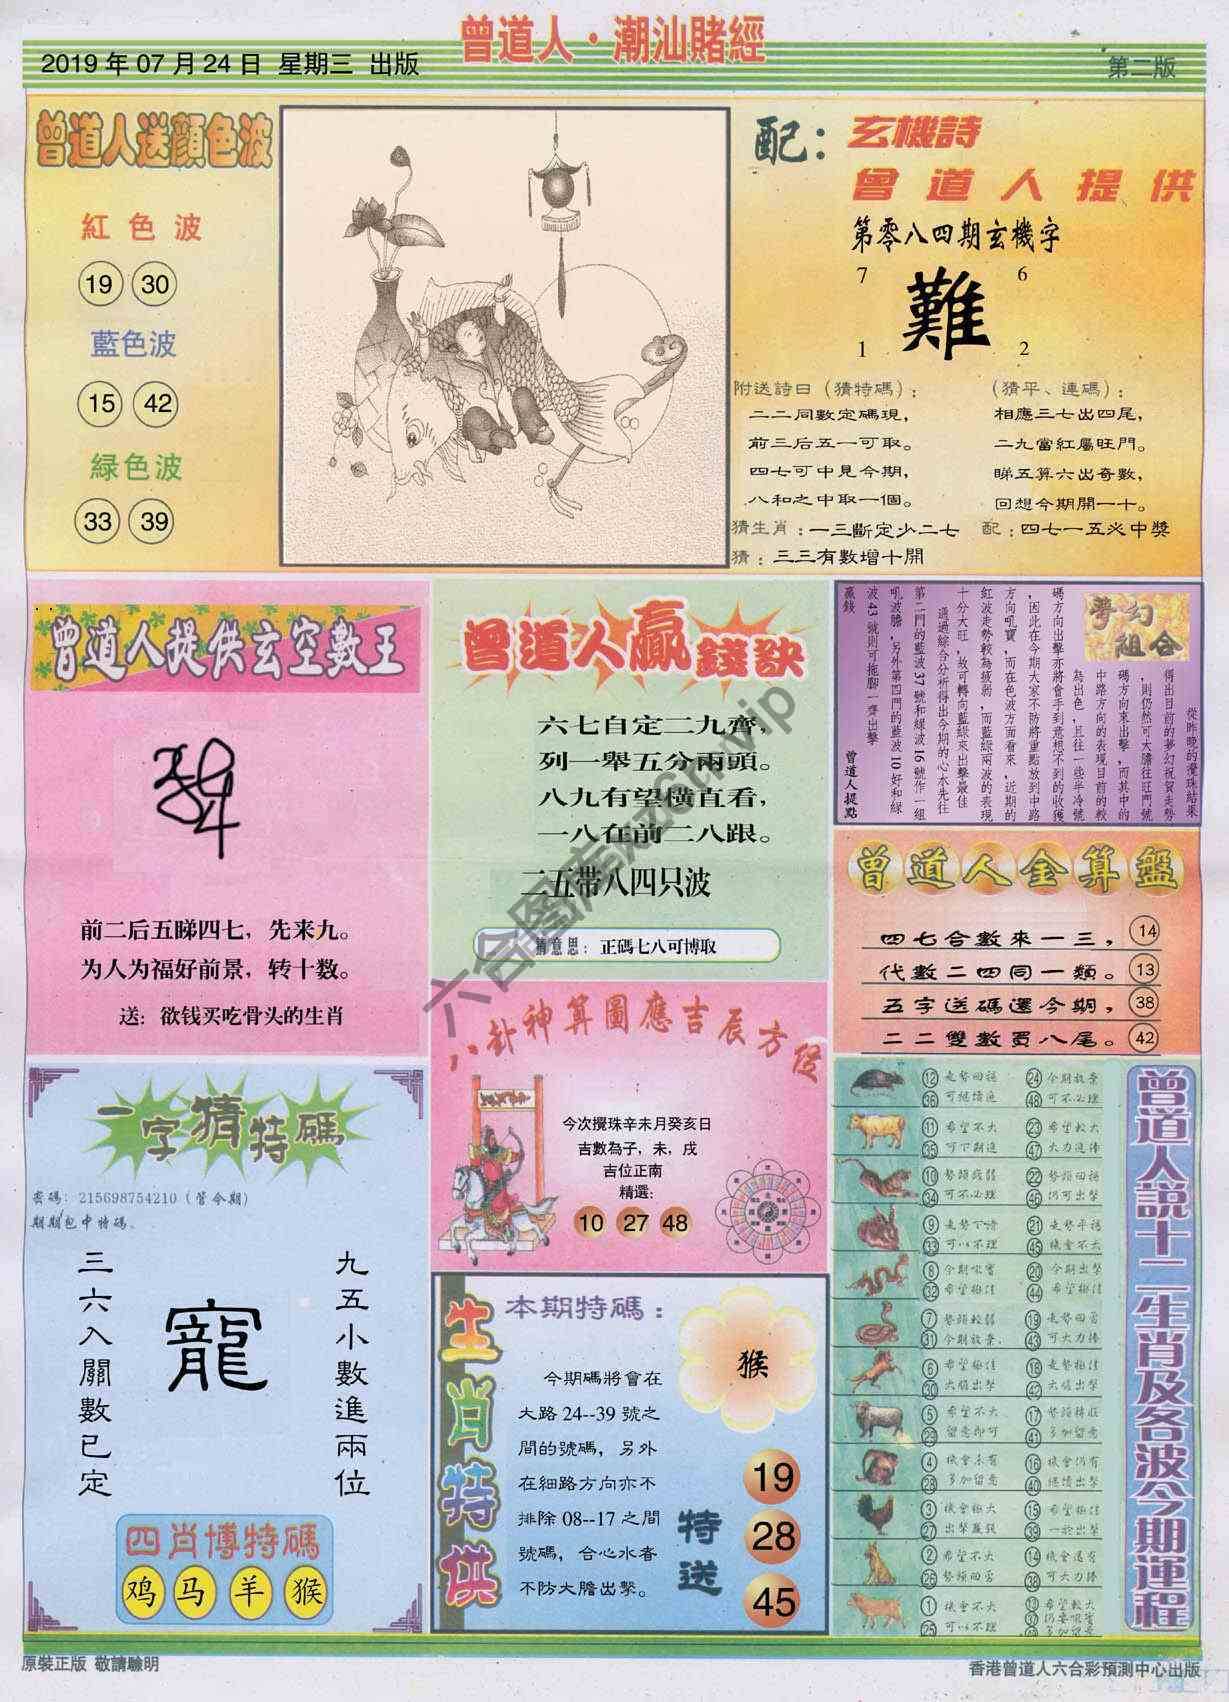 曾道人·潮汕賭經
2019 年 07 月 24 日 星期三 出版
第二版
曾道人送顏色波
紅色波
19 30
藍色波
15 42
緑色波
33 39
配：
玄機詩
曾道人提供
第零八四期玄機字
7 6
難
1 2
附送詩曰（猜特碼）：
二二同數定碼現，
前三后五一可取。
四七可中見今期，
八和之中取一個。
（猜平、連碼）：
相應三七出四尾，
二九當紅屬旺門。
睇五算六出奇數，
回想今期開一十。
猜生肖：一三斷定少二七
配：四七一五必中獎
猜：三三有數增十開
曾道人提供玄空數王
前二后五睇四七，先来九。
为人为福好前景，转十数。
送：欲钱买吃骨头的生肖
曾道人贏錢訣
六七自定二九齊，
列一舉五分兩頭。
八九有望橫直看，
一八在前二八跟。
二五带八四只波
猜意思：正碼七八可博取
夢幻組合
從昨晚的攪珠結果
得出目前的夢幻祝賀走勢
，則仍然可大膽往旺門號
碼方向來出擊，而其中的
中路方向的表現目前的較
為出色，且往一些半冷號
碼方向出擊亦將會手到意想不到的收獲
，因此在今期大家不防將重點放到中路
方向吼寶，而在色波方面看來，近期的
紅波走勢較為疲弱，而藍綠兩波的表現
十分大旺，故可轉向藍綠來出擊最佳
通過綜合分析得出今期的心水先往
第二門的藍波 37 號和緑波 16 號作一組
吼波膽，另外第四門的藍波 10 好和緑
波 43 號則可拖腳一齊出擊
贏錢
曾道人提點
曾道人金算盤
四七合數來一三， 14
代數二四同一類。 13
五字送碼還今期， 38
二二雙數買八尾。 42
八卦神算圖應吉辰方位
今次攪珠辛未月癸亥日
吉數為子，未，戌
吉位正南
精選：
10 27 48
一字猜特碼
密碼：215698754210（管今期）
期期包中特碼。
三六入關數已定
寵
九五小數進兩位
四肖博特碼
鸡 马 羊 猴
生肖特供
本期特碼：
猴
今期碼將會在
大路 24--39 號之
間的號碼，另外
在細路方向亦不
排除 08--17 之間
號碼，合心水者
不防大膽出擊。
特送
19
28
45
曾道人說十二生肖及各波今期運程
12 走勢回穩 24 今期放棄
36 可繼續追 48 可不必理
11 希望不大 23 希望較大
35 可下期追 47 大力追捧
10 勢頭疲弱 22 勢頭回穩
34 可不必理 46 仍可出擊
9 走勢下滑 21 走勢平穩
33 可以不理 45 機會不大
8 今期吼實 20 今期出擊
32 希望極佳 44 希望極佳
7 勢頭較弱 19 走勢回奮
31 今期放棄. 43 可大力捧
6 希望極佳 18 走勢極佳
30 大膽出擊 42 大膽出擊
5 希望不大 17 勢頭特旺
29 留意即可 41 多加留意
4 機會未有 16 機會仍有
28 多加留意 40 繼續出擊
3 機會極大 15 希望極佳
27 出擊贏錢 39 一於出擊
2 希望不大 14 機會還有
26 勢頭回落 38 可大力捧
1 機會不大 13 希望較大
25 可以不理 37 仍要吼實
原裝正版 敬請驗明
香港曾道人六合彩預測中心出版
六合图库xz6h.vip